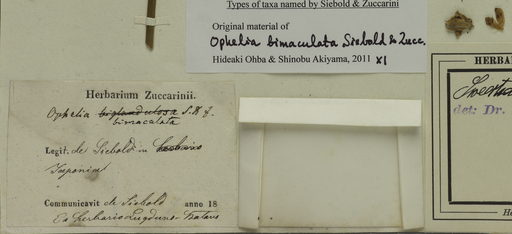 Types of taxa named by Siebold & Zuccarini
Original material of
Ophelia bimaculata Siebold & Zucc.
Hideaki Ohba & Shinobu Akiyama, 2011 XI
Herbarium Zuccarinii.
Ophelia biglandulosa S. & Z.
bimaculata
Legit. de Siebold in
Japonia
Communicavit de Siebold anno 18
Ex herbario Lugduno-Batavo
HERBA
Swertia
det: Dr.
He